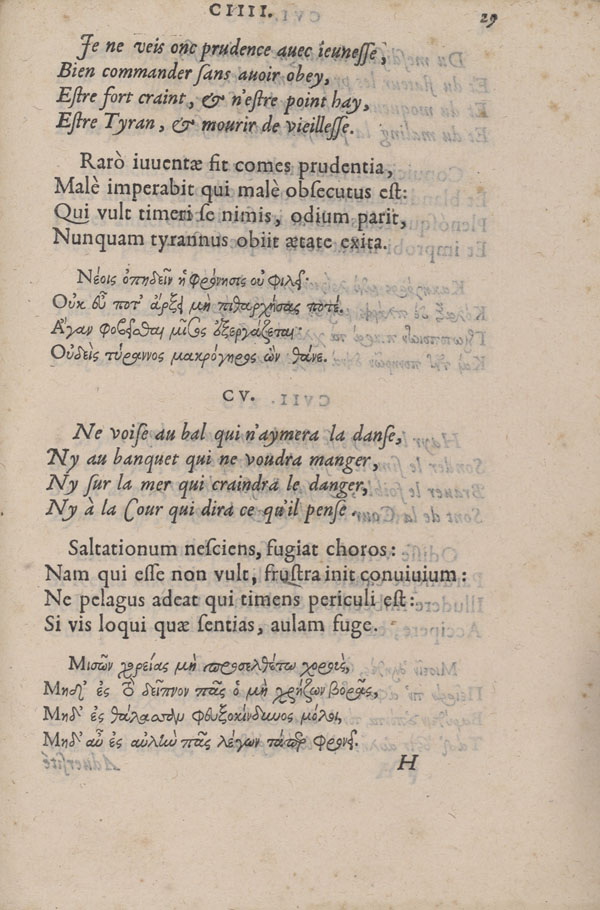 CIIII.
29
Je ne veis onc prudence auec ieunesse,
Bien commander sans auoir obey,
Estre fort craint, & n'estre point hay,
Estre Tyran, & mourir de vieillesse.
Rarò iuuentæ fit comes prudentia,
Malè imperabit qui malè obsecutus est:
Qui vult timeri se nimis, odium parit,
Nunquam tyrannus obiit ætate exita.
Νέοις ὀπηδεῖν ἡ φρόνησις οὐ φιλεῖ·
Οὐκ εὖ ποτ' ἄρξει μὴ πιθαρχήσας ποτέ.
Ἄγαν φοβεῖσθαι μῖσος ἐξεργάζεται·
Οὐδεὶς τύραννος μακρόγηρος ὢν θάνε.
CV.
Ne voise au bal qui n'aymera la danse,
Ny au banquet qui ne voudra manger,
Ny sur la mer qui craindra le danger,
Ny à la Cour qui dira ce qu'il pense.
Saltationum nesciens, fugiat choros:
Nam qui esse non vult, frustra init conuiuium:
Ne pelagus adeat qui timens periculi est:
Si vis loqui quæ sentias, aulam fuge.
Μισῶν χορείας μὴ προσελθέτω χοροῖς,
Μηδ' ἐς τὸ δεῖπνον πᾶς ὁ μὴ χρῄζων βορᾶς,
Μηδ' ἐς θάλασσαν μολοι,
Μηδ' αὖ ἐς αὐλὴν πᾶς λέγων τάπερ φρονεῖ.
H